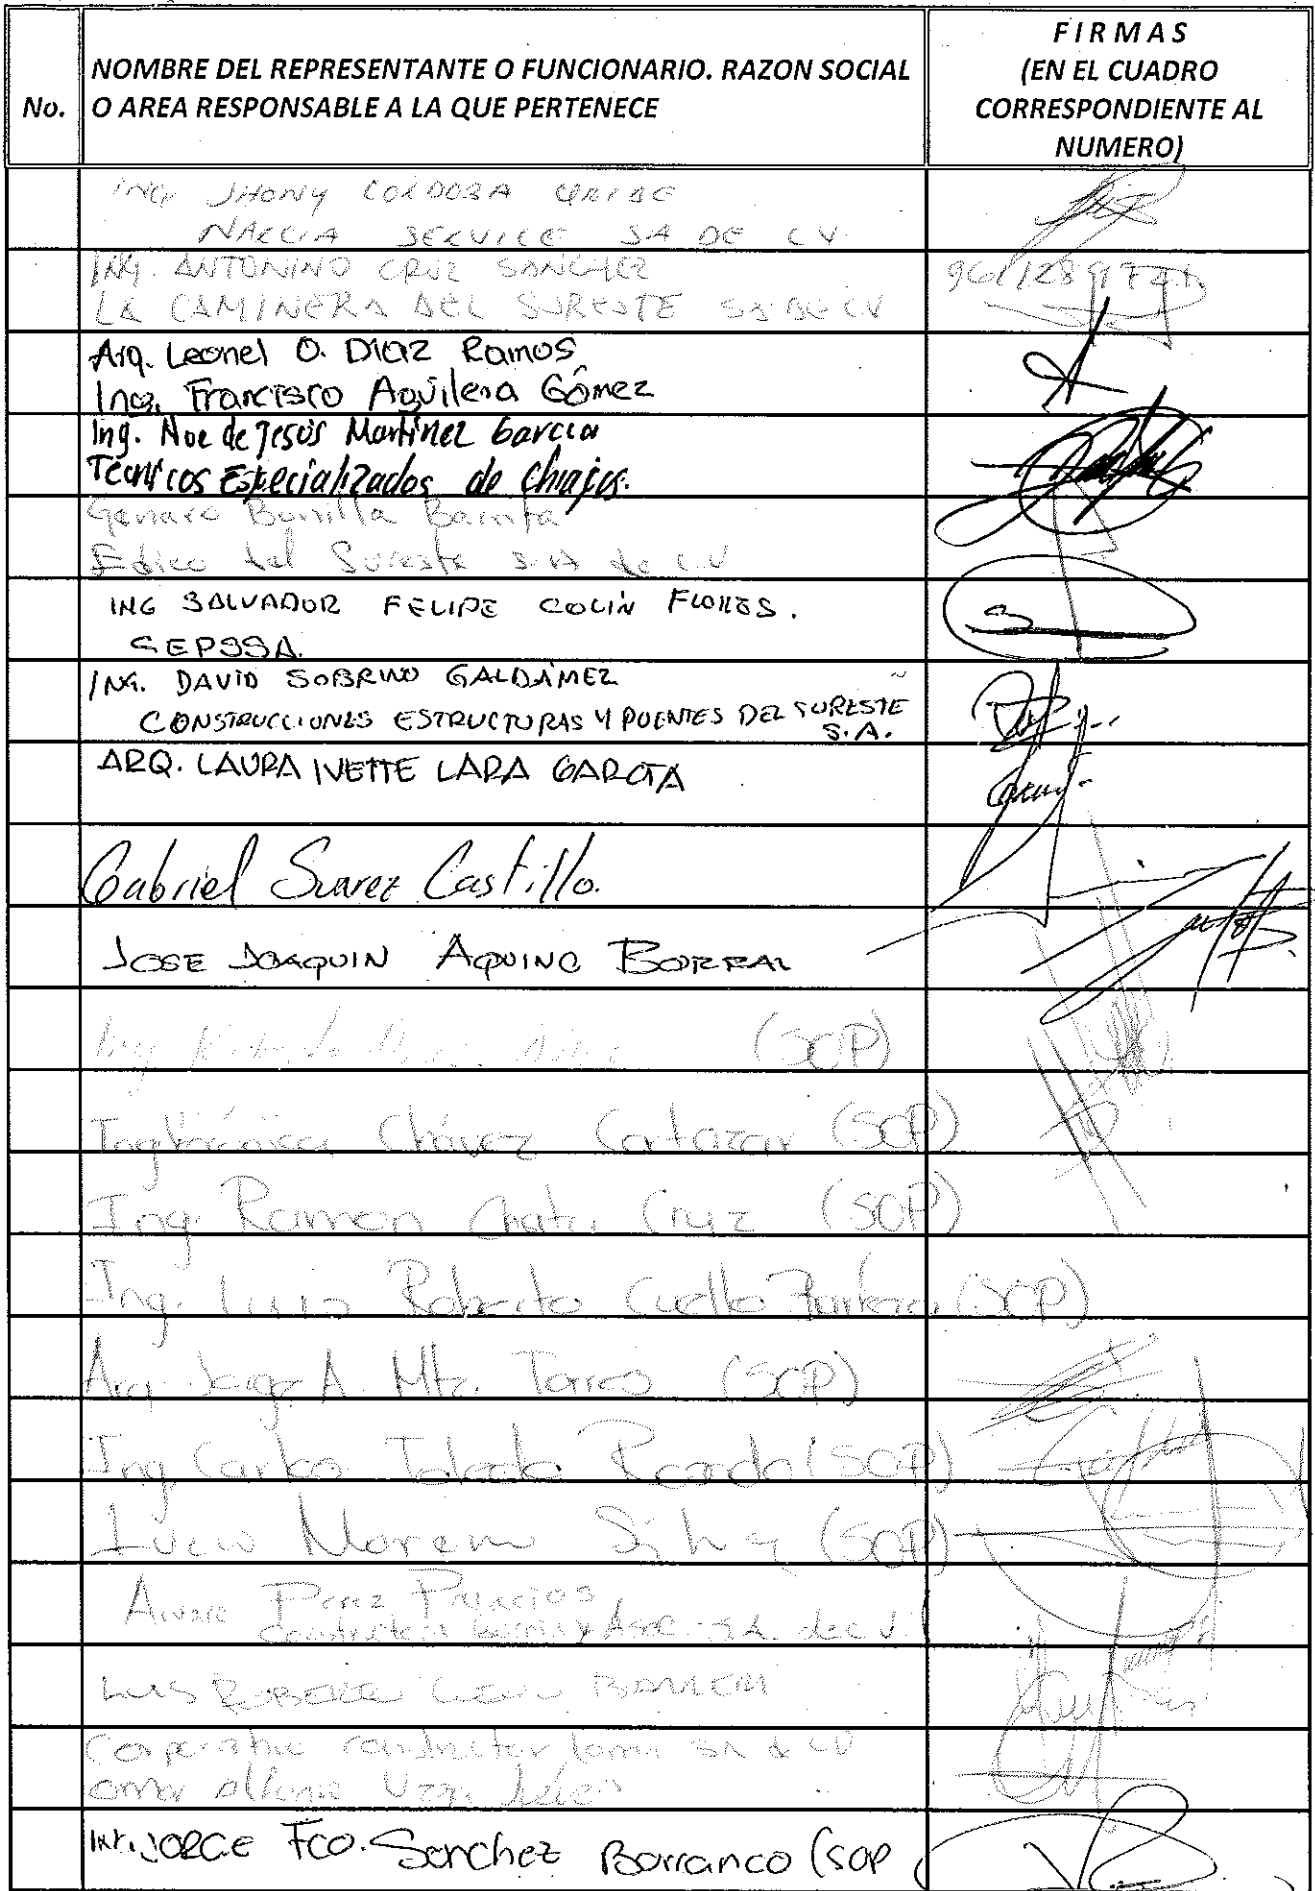 No.
NOMBRE DEL REPRESENTANTE O FUNCIONARIO. RAZON SOCIAL
O AREA RESPONSABLE A LA QUE PERTENECE
FIRMAS
(EN EL CUADRO
CORRESPONDIENTE AL
NUMERO)
ING JHONY CORDOBA URIBE
SERVICE SA DE CV.
ING. ANTONINO CRUZ SANCHEZ
LA CAMINERA DEL SURESTE SA DE CV
Arq. Leonel O. Diaz Ramos
Ing. Francisco Aguilera Gómez
Ing. Noe de Jesús Martínez García
Técnicos Especializados de Chiapas.
Genaro Bonilla
Edico del Sureste S.A de C.V
ING SALVADOR FELIPE COLÍN FLORES.
SEPSSA.
ING. DAVID SOBRINO GALDÁMEZ
CONSTRUCCIONES ESTRUCTURAS Y PUENTES DEL SURESTE
S.A.
ARQ. LAURA IVETTE LARA GARCÍA
Gabriel Suarez Castillo.
JOSE JOAQUIN AQUINO BORRAZ
Ing (SOP)
Ing Verónica Chávez Cortazar (SOP)
Ing. Ramon Cruz (SOP)
Ing. Luis Roberto Cuello (SOP)
Arq. Jorge A. Mtz. Torres (SOP)
Ing Carlos Toledo (SOP)
Moreno Silva (SOP)
Alvaro Perez Palacios
y Asoc. S.A. de C.V.
LUIS
SA de CV
Omar
Int. JORGE Fco. Sanchez Barranco (SOP)